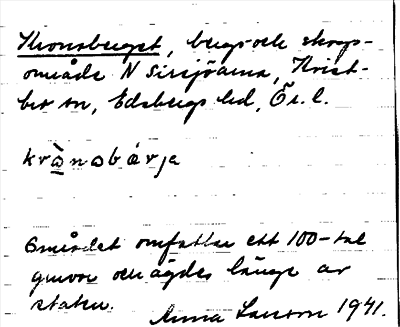 Kronsberget, bergs- och skogs-
område N Sirsjöarna, Krist-
ber sn, hd, Ög. l.
krònsbǽrje
Området omfattar ett 100-tal
gruvor och ägdes länge av
staten.
Anna Larsson 1941.